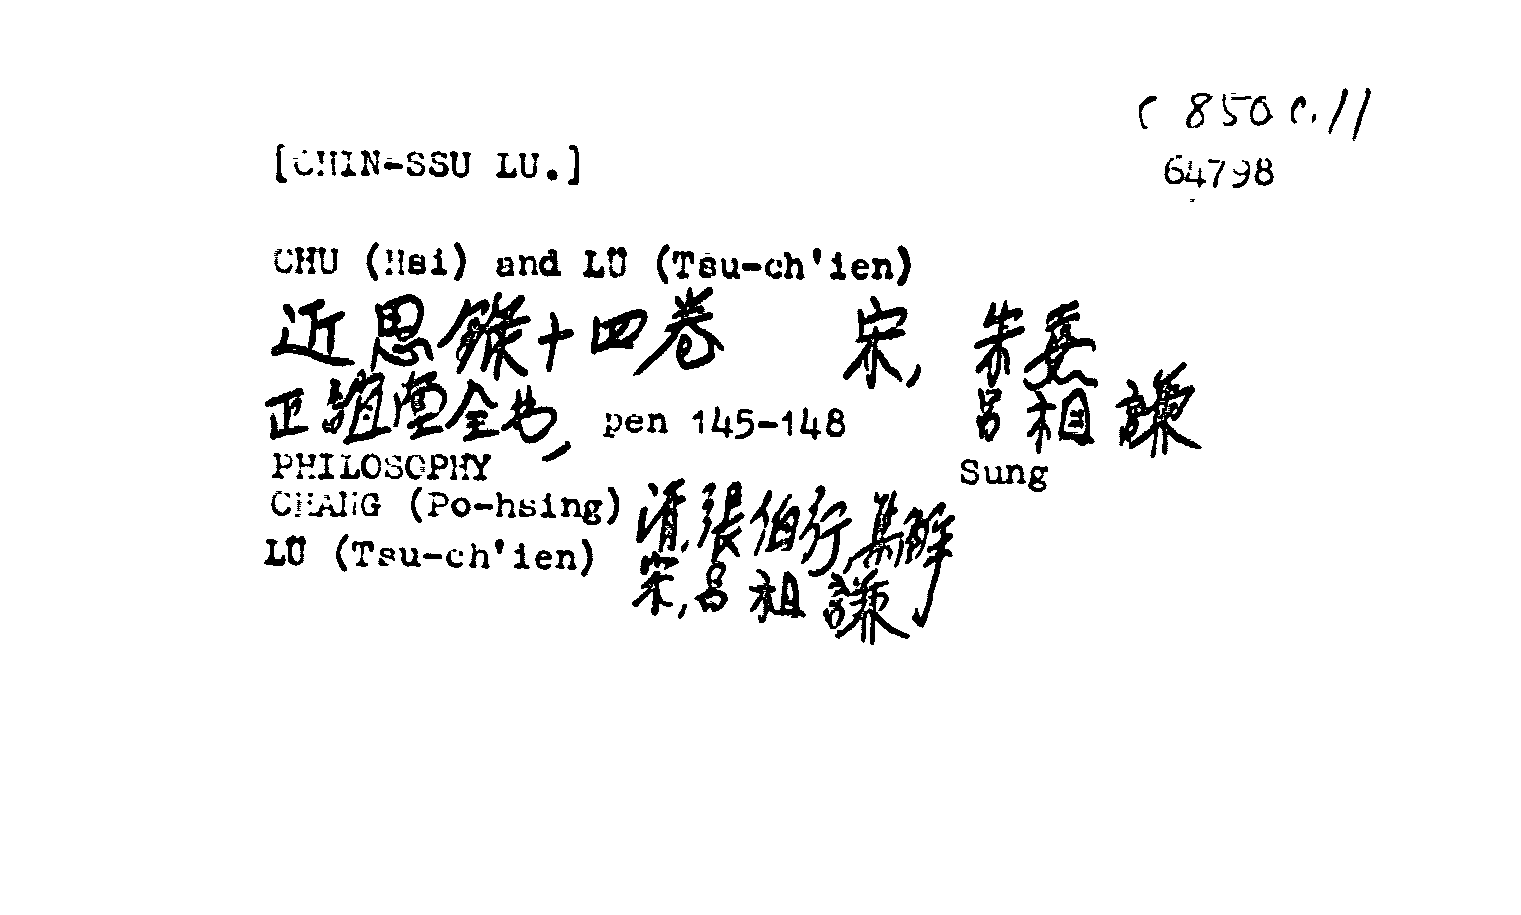 C 850 c.11
[CHIN-SSU LU.]
64798
CHU (Hsi) and LÜ (Tsu-ch'ien)
近思錄十四卷 宋, 朱熹
正誼堂全书, pen 145-148 呂祖謙
PHILOSOPHY Sung
CHANG (Po-hsing) 清, 張伯行集解
LÜ (Tsu-ch'ien) 宋, 呂祖謙